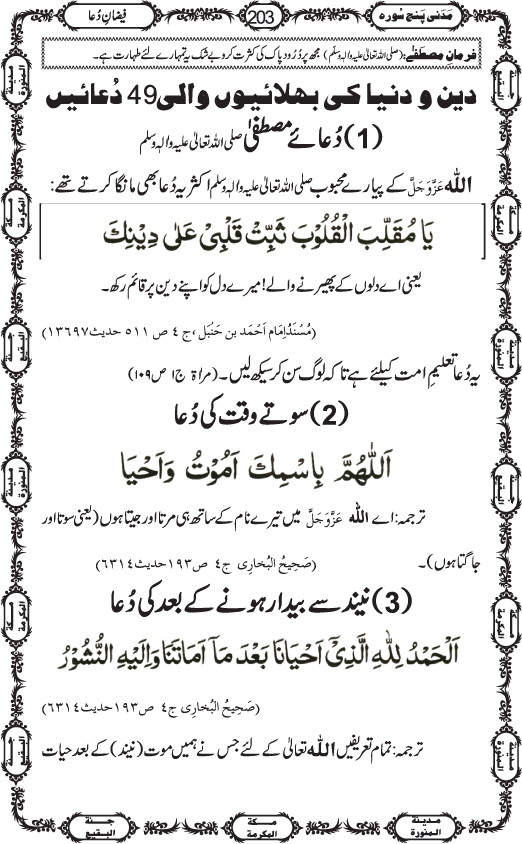 مَدَنی پنج سورہ
203
فیضانِ دُعا
فرمانِ مصطَفٰے: (صلی اللہ تعالیٰ علیہ والہٖ وسلّم) مجھ پر دُرُود پاک کی کثرت کرو بے شک یہ تمہارے لئے طہارت ہے۔
دین و دنیا کی بھلائیوں والی 49 دُعائیں
(1) دُعائے مصطفٰے صلی اللہ تعالیٰ علیہ والہٖ وسلم
اللہ عَزَّوَجَلَّ کے پیارے محبوب صلی اللہ تعالیٰ علیہ والہٖ وسلم اکثر یہ دُعا بھی مانگا کرتے تھے:
یَا مُقَلِّبَ الْقُلُوْبَ ثَبِّتْ قَلْبِیْ عَلٰی دِیْنِكَ
یعنی اے دلوں کے پھیرنے والے! میرے دل کو اپنے دین پر قائم رکھ۔
(مُسْنَدِ اِمَام اَحْمَد بن حَنْبَل ،ج ٤ ص ٥١١ حدیث ١٣٦٩٧)
یہ دُعا تعلیمِ امت کیلئے ہے تاکہ لوگ سن کر سیکھ لیں۔ (مراۃ ج۱ ص۱۰۹)
(2) سوتے وقت کی دُعا
اَللّٰهُمَّ بِاسْمِكَ اَمُوْتُ وَاَحْیَا
ترجمہ: اے اللہ عَزَّوَجَلَّ میں تیرے نام کے ساتھ ہی مرتا اور جیتا ہوں (یعنی سوتا اور
جاگتا ہوں)۔ (صَحِیحُ البُخاری ج٤ ص١٩٣ حدیث٦٣١٤)
(3) نیند سے بیدار ہونے کے بعد کی دُعا
اَلْحَمْدُ لِلّٰهِ الَّذِیْٓ اَحْیَانَا بَعْدَ مَآ اَمَاتَنَا وَاِلَیْهِ النُّشُوْرُ
(صَحِیحُ البُخاری ج٤ ص١٩٣ حدیث٦٣١٤)
ترجمہ: تمام تعریفیں اللہ تعالیٰ کے لئے جس نے ہمیں موت (نیند) کے بعد حیات
مدینۃ المنورۃ
مکۃ المکرمۃ
جنۃ البقیع